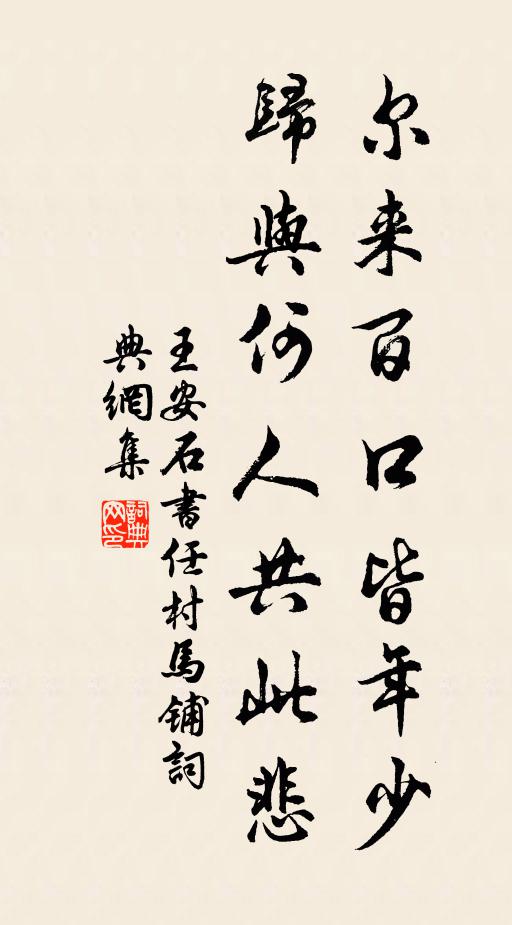 尔来百口皆年少
歸與何人共此悲
王安石書任村馬鋪詞
典網集
詞典网印